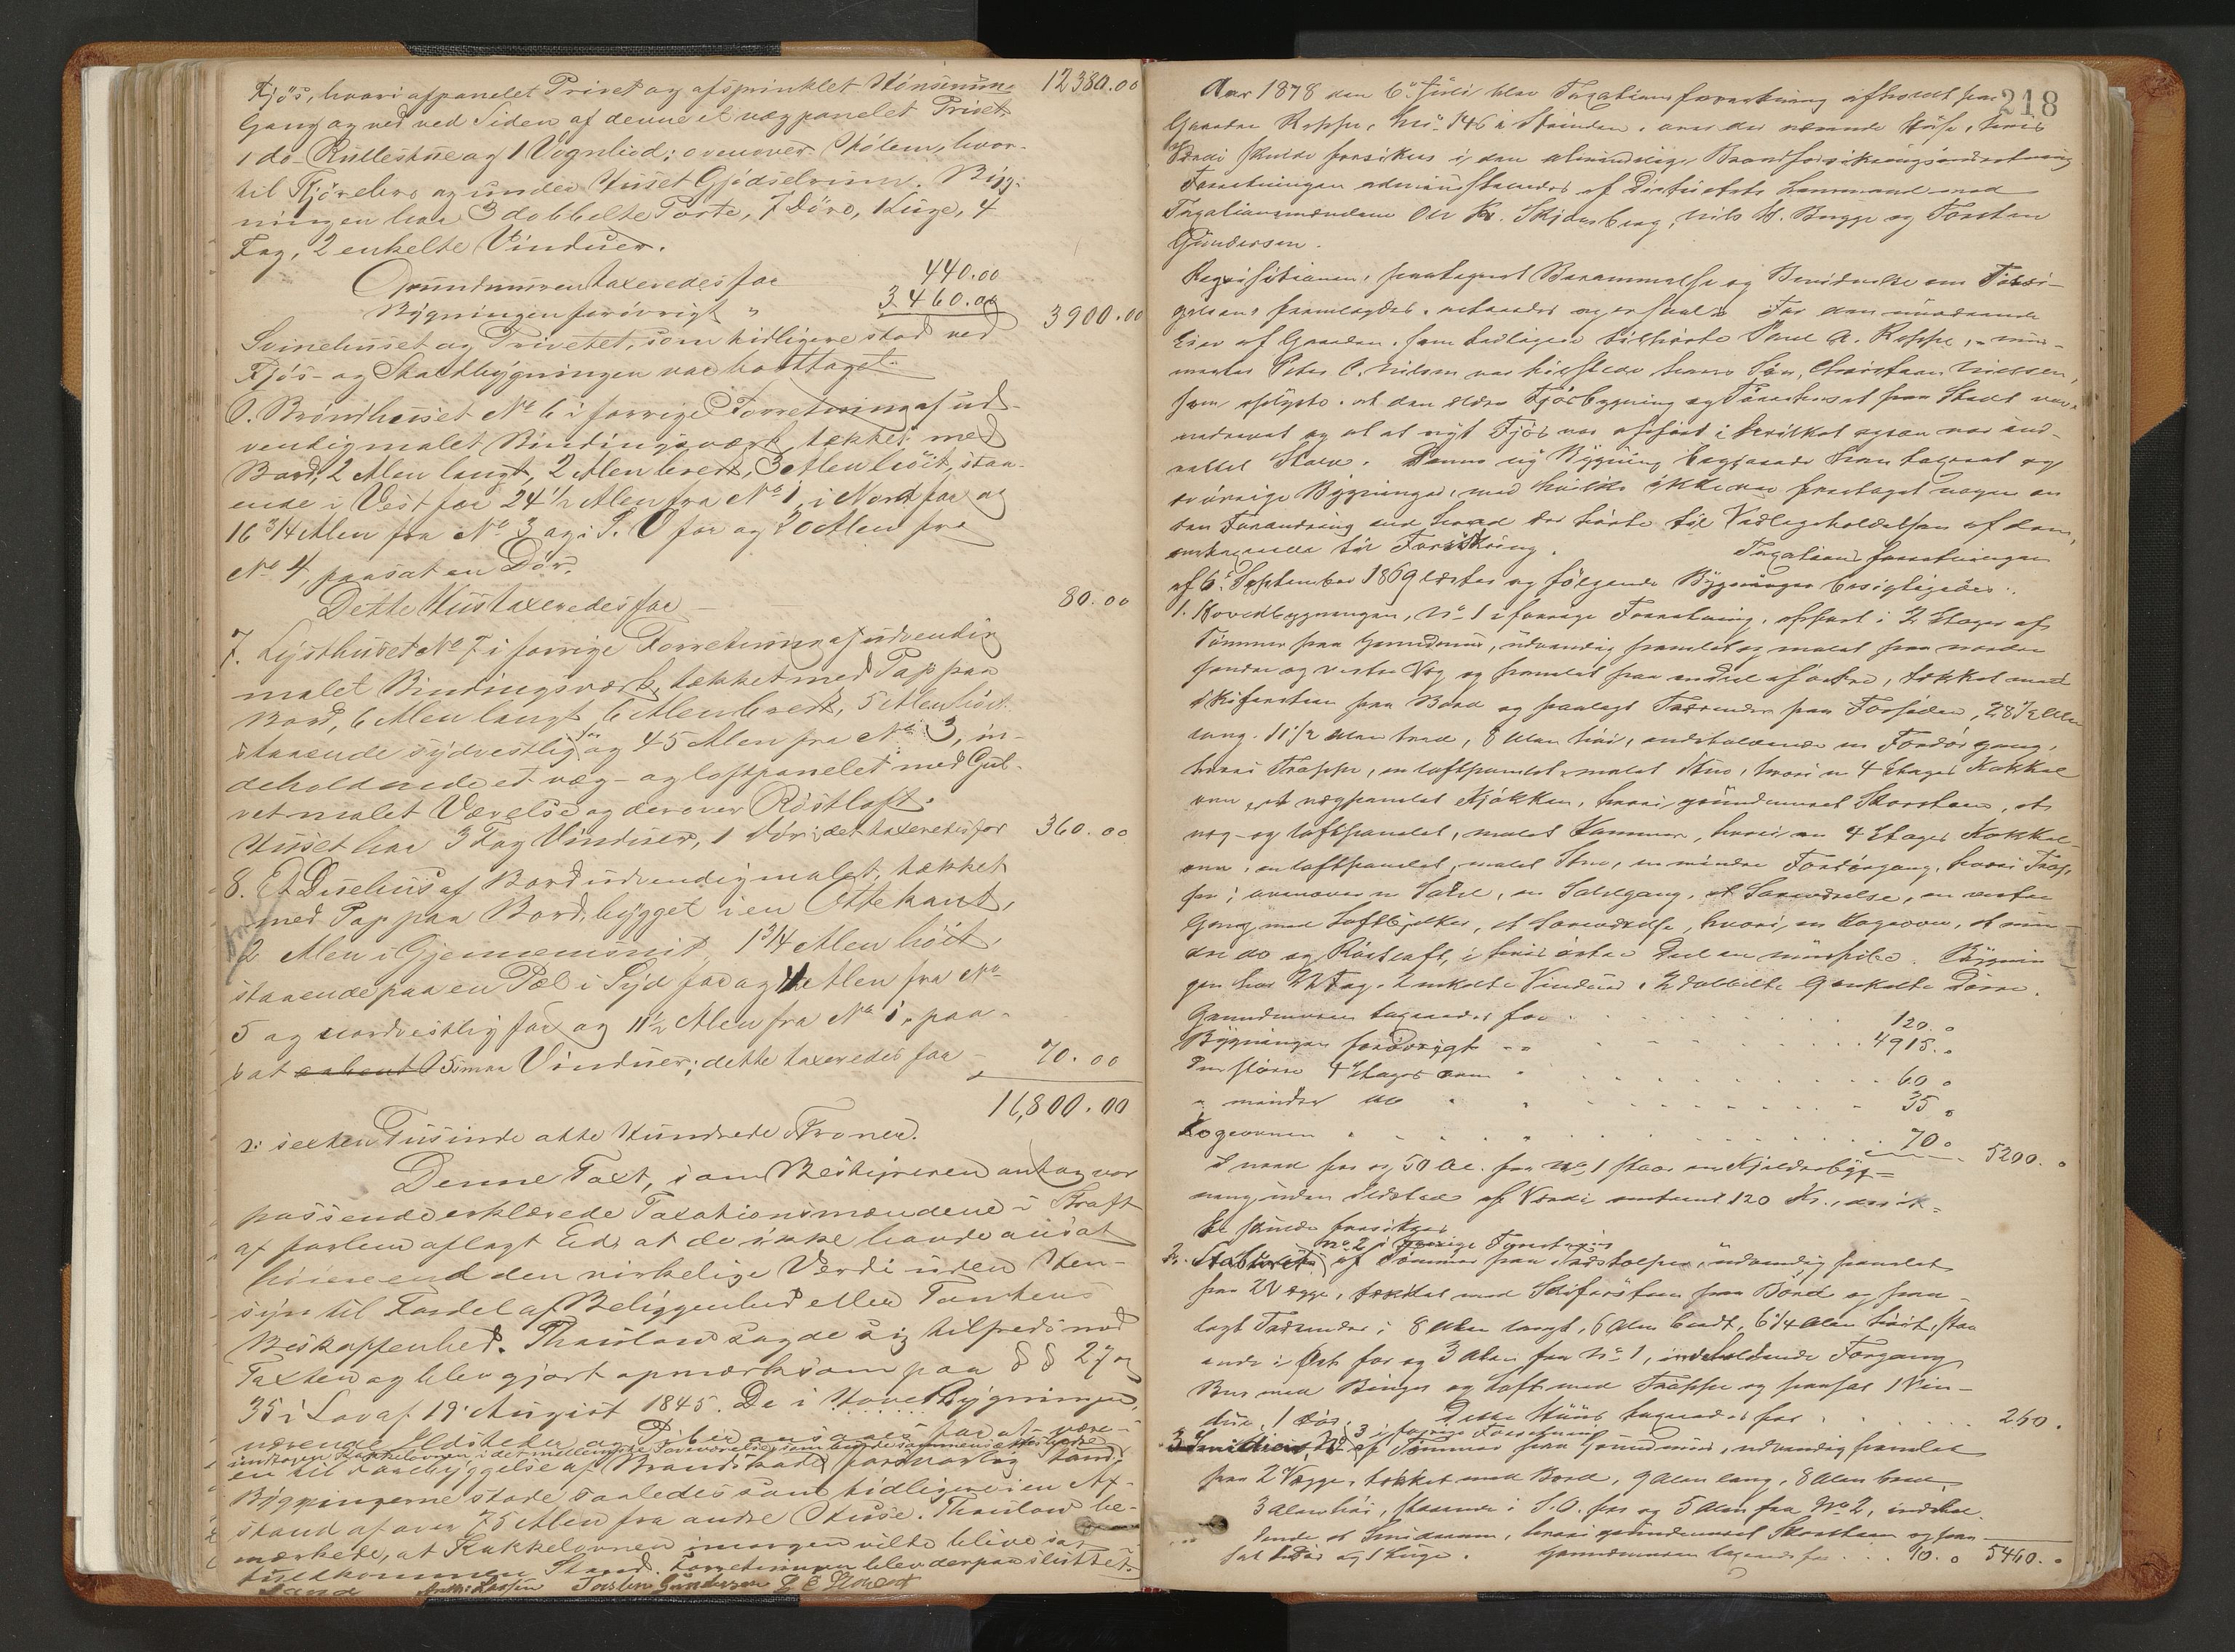 Fjös, hvori afpanelet Privet og afsprinklet Hönserum. 12380.00
Gang og ved ved Siden af denne et vægpanelet Privet,
1 do Rullestue og 1 Vognbod; ovenover Stölem, hvor-
til Kjörebro og under Huset Gjödselrum. Byg-
ningen har 3 dobbelte Porte, 7 Döre, 1 Luge, 4
Fag, 2 enkelte Vinduer.
Grundmuren taxeredes for 440.00
Bygningen forövrigt " 3460.00 3900.00
Svinehuset og Privetet, som tidligere stod ved
Fjös- og Staldbygningen var borttaget.
6. Bröndhuset No 6 i forrige Forretning af ud-
vendig malet Bindingsværk, tækket med
Bord, 2 Alen langt, 2 Alen bredt, 3 Alen höit, staa-
ende i Vest for 24 1/2 Alen fra No 1, i Nord for og
16 3/4 Alen fra No 3 og i S. O for og 20 Alen fra
No 4, paasat en Dör.
Dette Hus taxeredes for 80.00
7. Lysthuset No 7 i forrige Forretning af udvendig
malet Bindingsværk, tækket med Pap paa
Bord, 6 Alen langt, 6 Alen bredt, 5 Alen höit
staaende sydvestlig for og 45 Alen fra No 3, in-
deholdende et væg- og loftpanelet med Gul-
vet malet Værelse og derover Röstloft.
Huset har 3 Fag Vinduer, 1 Dör; det taxeredes for 360.00
8. Et Duehus af Bord udvendig malet, tækket
med Pap paa Bord, bygget i en Ottekant,
2 Alen i Gjennemsnit, 1 3/4 Alen höit,
staaende paa en Pæl i Syd for og 4 Alen fra No
5 og nordvestlig for og 11 1/2 Alen fra No 1, paa-
sat 5 smaa Vinduer; dette taxeredes for 70.00
16,800.00
ɔ: sexten Tusinde otte Hundrede Kroner.
Denne Taxt, som Bestyreren antog var
passende erklærede Taxationsmændene i Kraft
af forhen aflagt Ed, at de ikke havde ansat
höiere end den virkelige Verdi uden Hen-
syn til Fordel af Beliggenhed eller Tomtens
Beskaffenhed. Thaulow sagde sig tilfreds med
Taxten og blev gjort opmærksom paa §§ 27 og
35 i Lov af 19 August 1845. De i Hovedbygningen
værende Ildsteder og Piber ansaaes for at være
undtagen Kakkelovnen i det mellemste Soveværelse, som burde sammensættes bedre
en til Forebyggelse af Brandskade forsvarlig Stand;
Bygningerne stode saaledes som tidligere i en Af-
stand af over 75 Alen fra andre Huse. Thaulow be-
mærkede, at Kakkelovnen imorgen vilde blive sat i
fuldkommen Stand. Forretningen blev derpaa sluttet.
Torsten Gundersen

218
Aar 1878 den 6te Juli blev Taxationsforretning afholdt paa
Gaarden Roppe, No 146 a Skrinden, over der værende Huse, hvis
Værdi skulde forsikres i den almindelige Brandforsikringsindretning
Forretningen administreredes af Distriktets Lensmand med
Taxationsmændene Ole Kr. Skjønsberg, Nils H. Bugge og Torsten
Gundersen.
Requisitionen, paategnet Berammelse og Bevidnelse om Tilsi-
gelsen fremlagdes. For den nuværende
Eier af Gaarden, som tidligere tilhörte Povel A. Roppe,
Peter C. Nilsen var tilstede hans Sön, Christian Nielsen,
som oplyste, at den ældre Fjösbygning og fra Stald var
nedrevet og at et nyt Fjös var opfört i hvilket ogsaa var ind-
rettet Stald. Denne ny Bygning begjærede han taxeret og
de övrige Bygninger, med hvilke ikke var foretaget nogen an-
den Forandring end hvad der hörte til Vedligeholdelsen af dem,
omtaxerede til Forsikring. Taxationsforretningen
af 6te September 1869 læstes og fölgende Bygninger besigtigedes:
1. Hovedbygningen, No 1 i forrige Forretning, opfört i 2 Etager af
Tömmer paa Grundmur, udvendig panelet og malet paa nordre
söndre og vestre Væg og panelet paa endel af östre, tækket med
Skifersten paa Bord og paalagt Tagrender paa Forsiden, 28 1/2 Alen
lang, 11 1/2 Alen bred, 8 Alen höi, indeholdende en Fordörgang,
hvori Trappe, en loftpanelet malet Stue, hvori en 4 Etages Kakkel-
ovn, et vægpanelet Kjökken, hvori grundmuret Skorsten, et
væg- og loftpanelet, malet Kammer, hvori en 4 Etages Kakkel-
ovn, en loftpanelet, malet Stue, en mindre Fordörgang, hvori Trap-
pe; ovenover en Sal, en Salsgang, et Soveværelse, en vestre
Gang med Loftbjelker, et Soveværelse, hvori en Kogeovn, et min-
dre do og Röstloft, i hvis östre Del en murpibe. Bygnin-
gen har 22 Fag, 2 enkelte Vinduer, 2 dobbelte 9 enkelte Döre.
Grundmuren taxeredes for 120.
Bygningen forövrigt 4915.
Den större 4 Etages Ovn 60
" mindre do 35
Kogeovnen 70 5200.
I nord for og 50 Al. fra No 1 staar en Kjelderbyg-
ning uden Ildsted af Værdi omtrent 120 Kr., der ik-
ke skulde forsikres
2. Stabburet No 2 i forrige Forretning af Tömmer paa Stolper, udvendig panelet
paa 2 Vægge, tækket med Skifersten paa Bord og paa-
lagt Tagrender; 8 Alen langt, 6 Alen bredt, 6 1/4 Alen höit, staa-
ende i Öst for og 3 Alen fra No 1, indeholdende Forgang
Bur med Binger og Loft med Trappe og paasat 1 Vin-
due, 1 Dör; Dette Huus taxeredes for 260.
3 Smidien, No 3 i forrige Forretning af Tömmer paa Grundmur, udvendig panelet
paa 2 Vægge, tækket med Bord, 9 Alen lang, 8 Alen bred
3 Alen höi, staaende i S.O. for og 5 Alen fra No 2, indehol-
dende et Smiderum, hvori grundmuret Skorsten og paa-
sat 1 Dör og 1 Luge. Grundmuren taxeredes for 10. 5460.